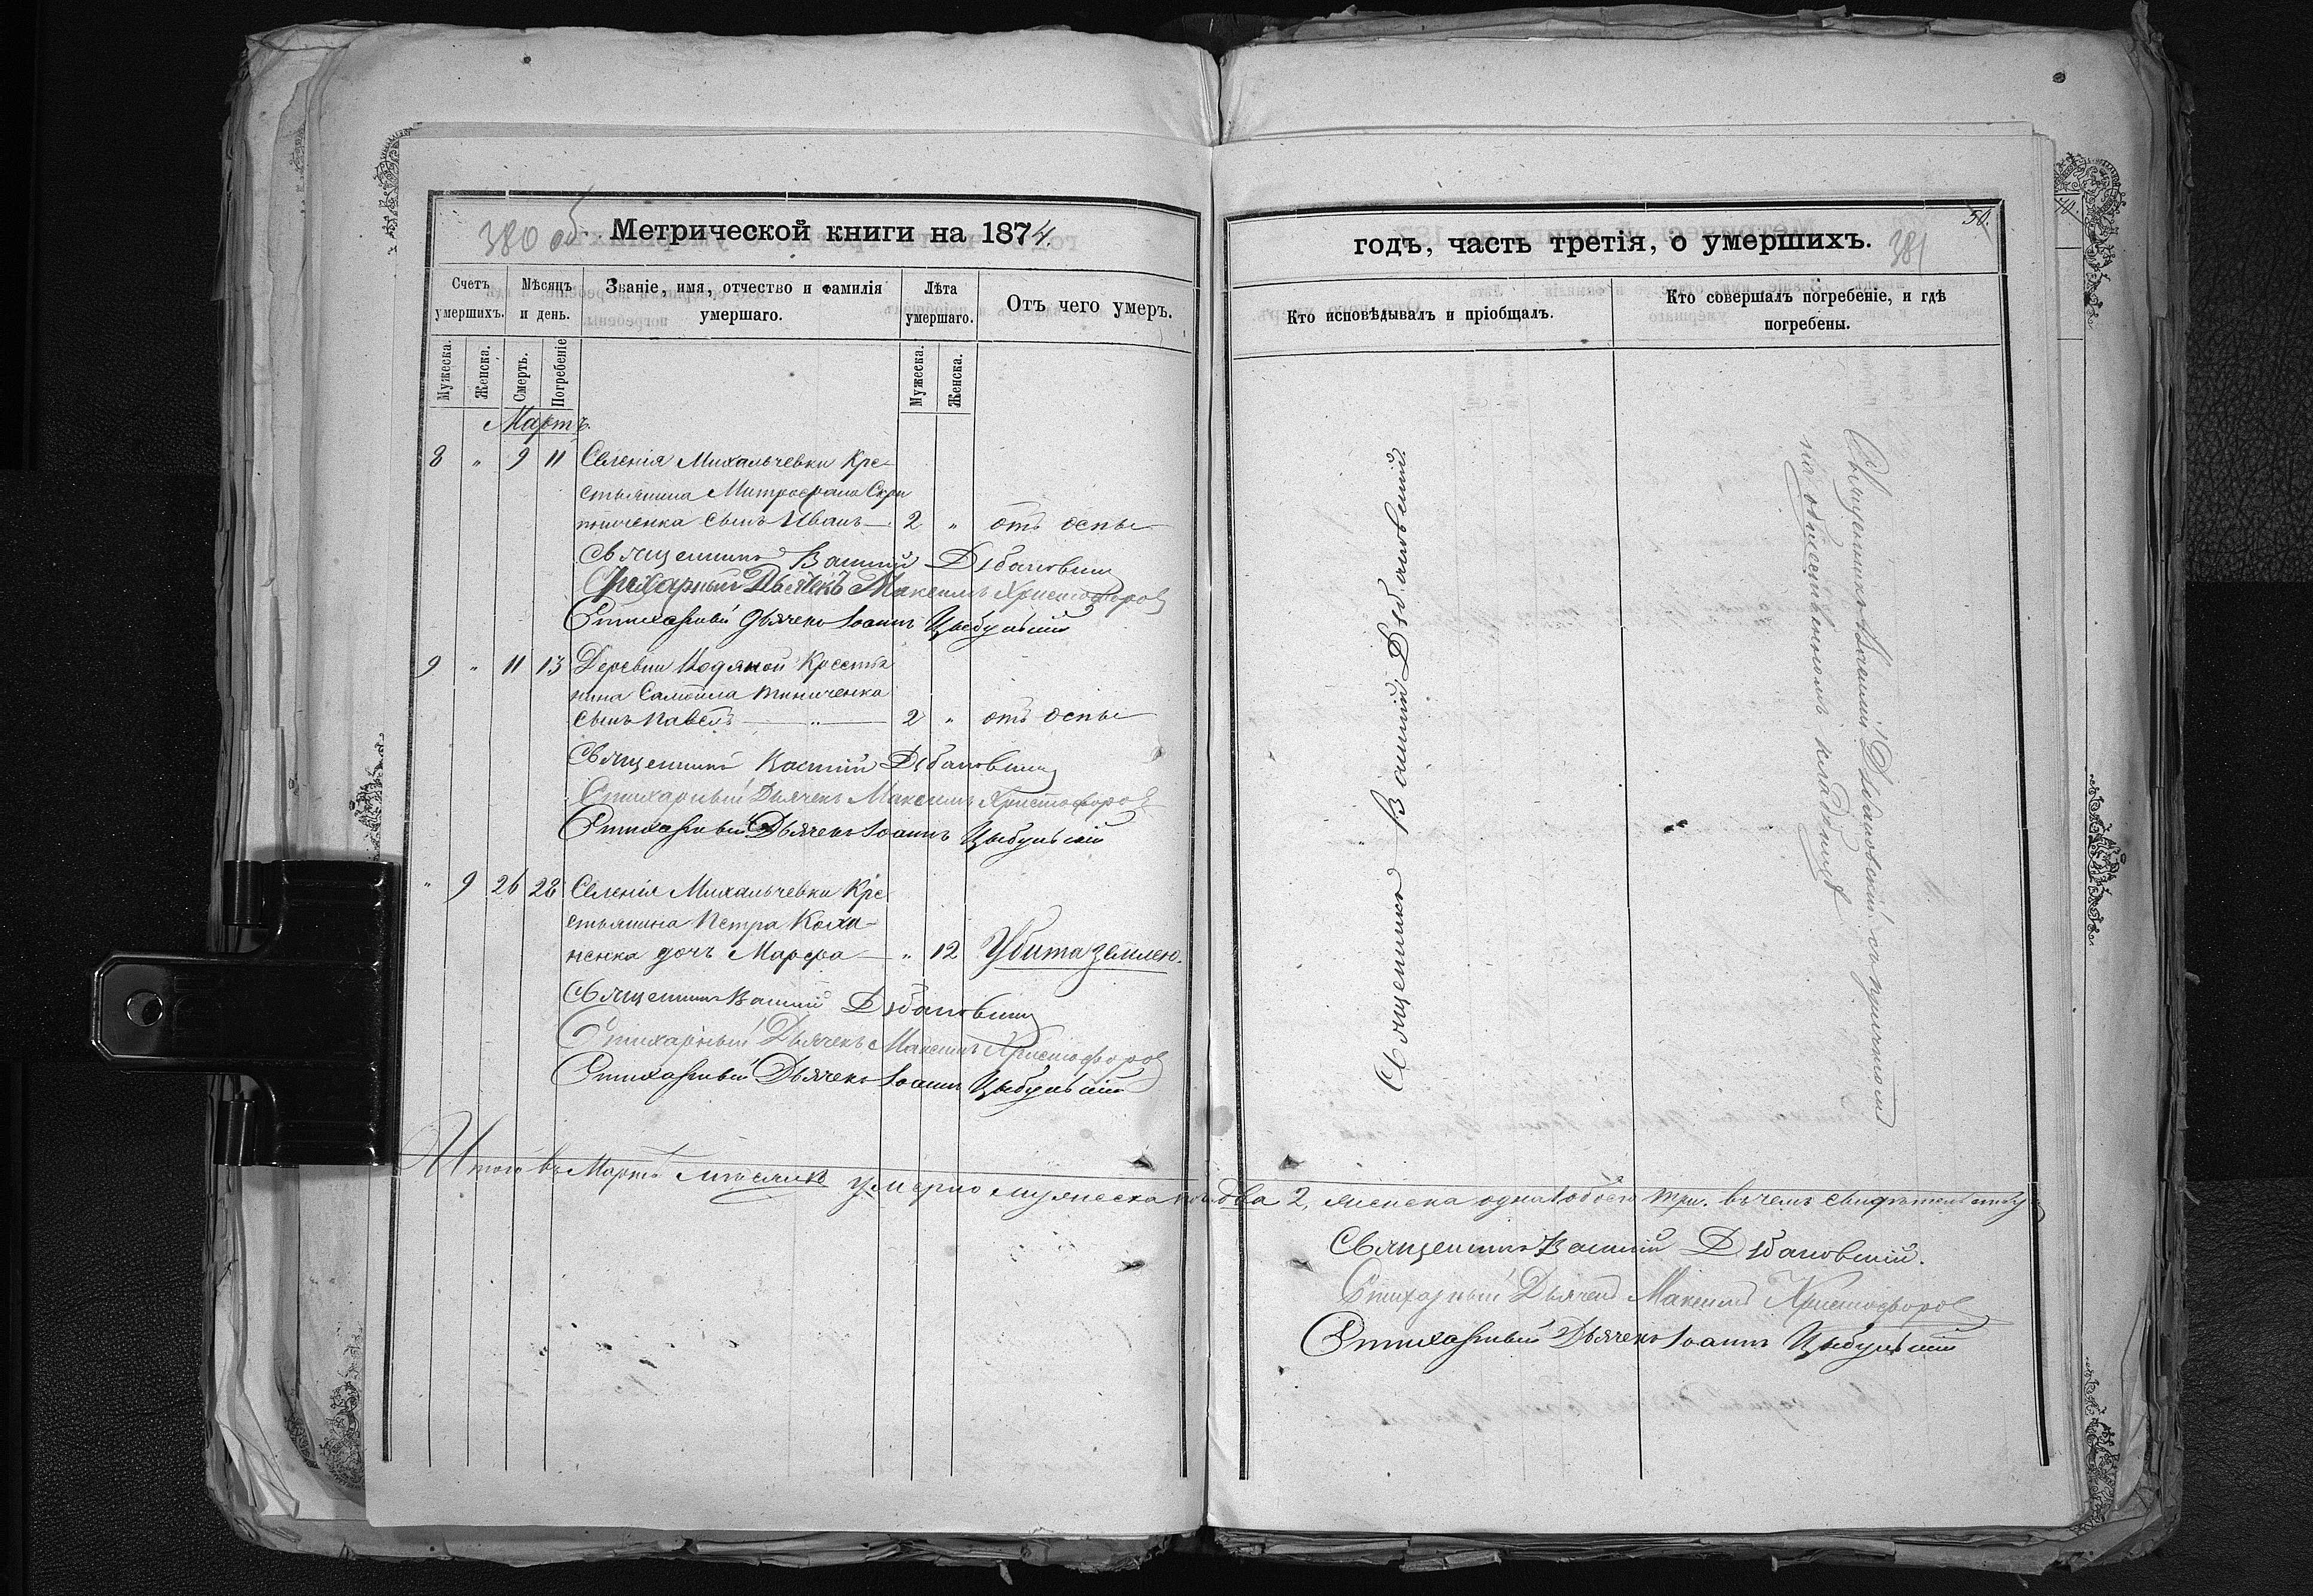 380 об.
Метрической книги на 1874.
Счетъ умершихъ.
Мѣсяцъ и день.
Званіе, имя, отчество и фамилія умершаго.
Лѣта умершаго.
Отъ чего умеръ.
Мужеска.
Женска.
Смерть.
Погребеніе
Мужеска.
Женска.
Мартъ.
8 " 9 11 Селенія Михальчевки Кре-
стьянина Митрофана Скри
пниченка сынъ Иванъ — 2 " отъ оспы
Священникъ Василій Дубановскій
Стихарный Дьячекъ Максимъ Христофоровъ
Стихарный Дьячекъ Іоаннъ Цыбульскій
9 " 11 13 Деревни Водяной Крестья
нина Самойла
сынъ Павелъ — " — 2 " отъ оспы
Священникъ Василій Дубановскій
Стихарный Дьячекъ Максимъ Христофоровъ
Стихарный Дьячекъ Іоаннъ Цыбульскій
" 9 26 28 Селенія Михальчевки Кре
стьянина Петра Коха-
ненка дочь Марфа — " 12 Убита землею.
Священникъ Василій Дубановскій
Стихарный Дьячекъ Максимъ Христофоровъ
Стихарный Дьячекъ Іоаннъ Цыбульскій
Итого въ Мартѣ мѣсяцѣ умерло мужеска пола два 2, женска одна 1 обоего три. въ чемъ свидѣтельствуемъ
50.
годъ, часть третія, о умершихъ.
381
Кто исповѣдывалъ и пріобщалъ.
Кто совершалъ погребеніе, и гдѣ погребены.
Священникъ Василій Дубановскій.
Священникъ Василій Дубановскій съ причтомъ
на общественномъ кладбищѣ
Священникъ Василій Дубановскій.
Стихарный Дьячекъ Максимъ Христофоровъ
Стихарный Дьячекъ Іоаннъ Цыбульскій